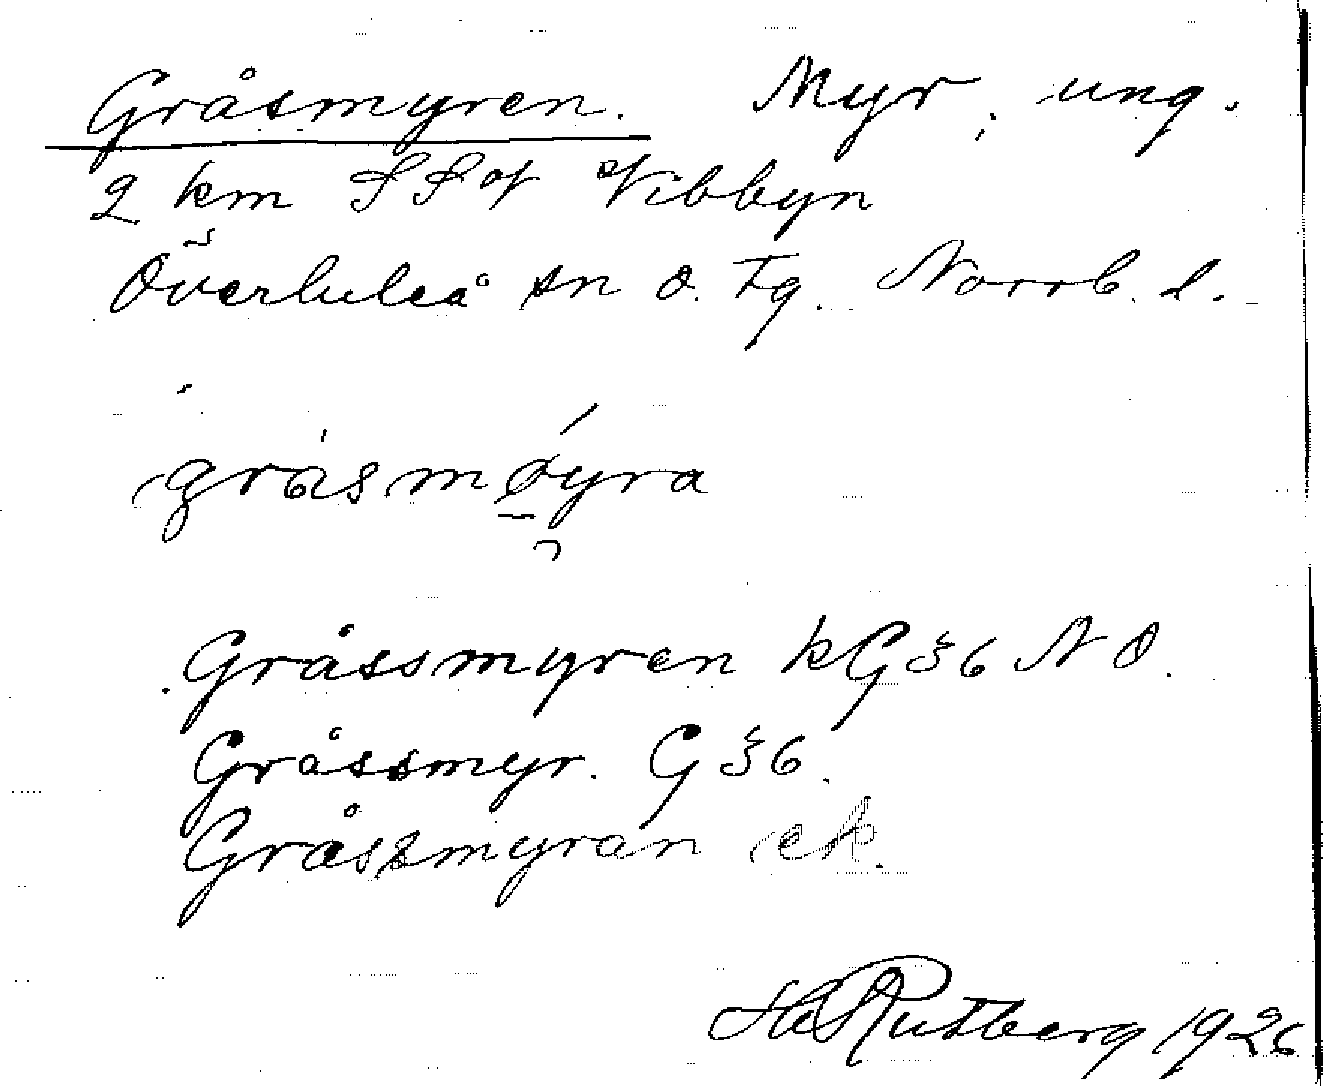 Gråsmyren. Myr, ung.
2 km SSV Vibbyn
Överluleå sn o. tg. Norrb. l.
gråsmøyra
Gråssmyren kG36 NO.
Gråssmyr. G36.
Gråssmyran ek.
Rutberg 1926